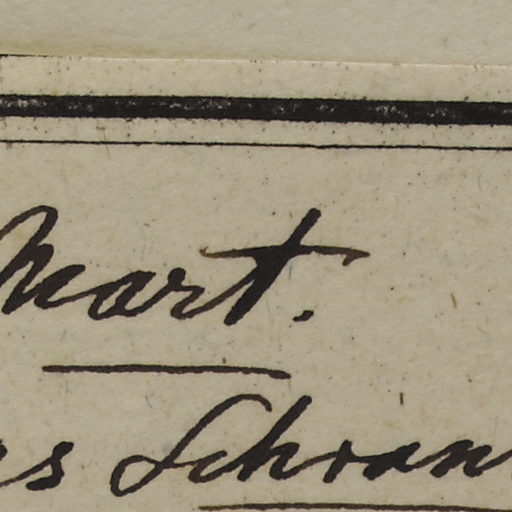 Mart.
es Schran